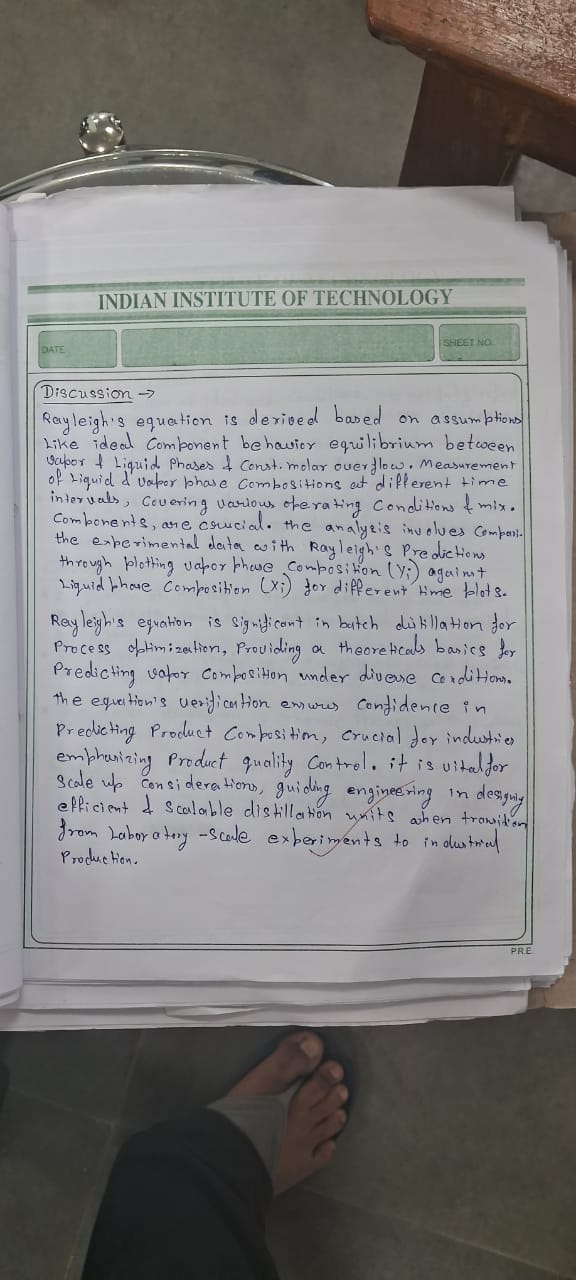 INDIAN INSTITUTE OF TECHNOLOGY
DATE
SHEET NO.
Discussion →
Rayleigh's equation is derived based on assumptions
Like ideal Component behavior equilibrium between
vapor & Liquid Phases & Const. molar overflow. Measurement
of Liquid & vapor phase Compositions at different time
intervals, Covering various operating Conditions & mix.
Components, are crucial. the analysis involves Compari-
the experimental data with Rayleigh's Predictions
through plotting vapor phase Composition (Yi) against
Liquid phase Composition (Xi) for different time plots.
Rayleigh's equation is Significant in batch distillation for
Process optimization, Providing a theoreticals basics for
Predicting vapor Composition under diverse conditions.
the equation's verification ensures Confidence in
Predicting Product Composition, Crucial for industries
emphasizing Product quality Control. it is vital for
Scale up Considerations, guiding engineering in designing
efficient & Scalable distillation units when transition
from Laboratory-Scale experiments to industrial
Production.
P.R.E.